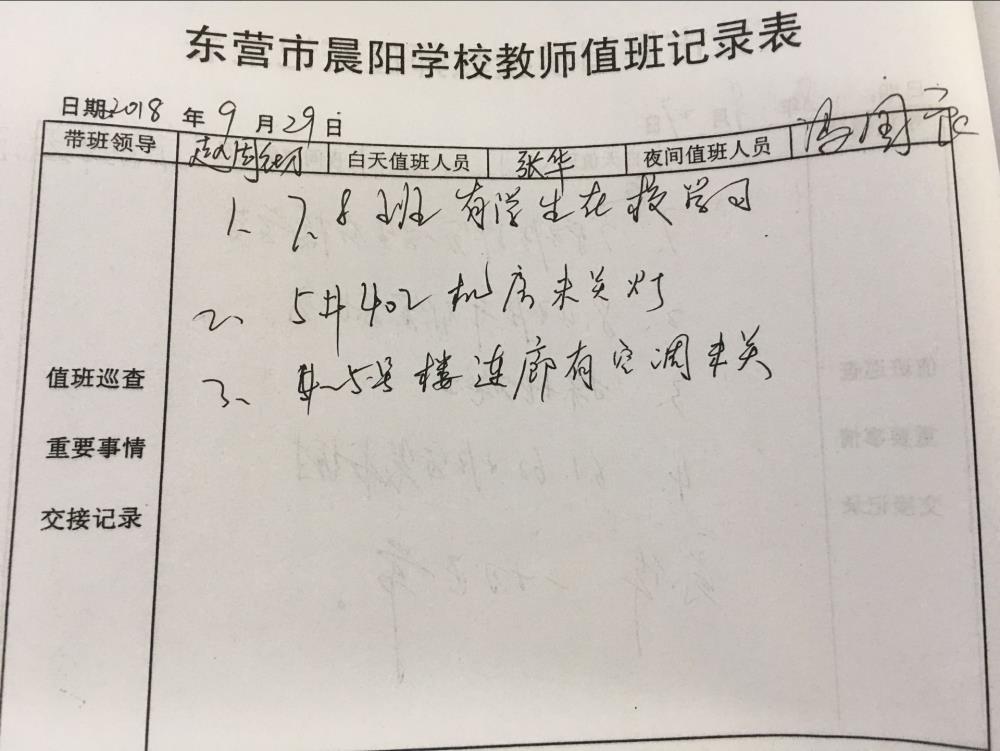 东营市晨阳学校教师值班记录表
日期:2018年9月29日
带班领导 白天值班人员 张华 夜间值班人员
1、7.8班有学生在校学习
2、5#402机房未关灯
值班巡查
3、4~5号楼连廊有空调未关
重要事情
交接记录